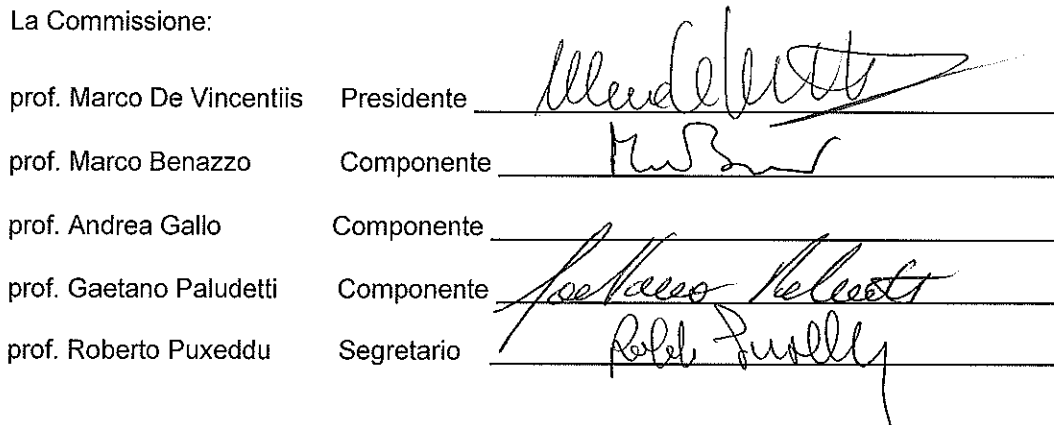 La Commissione:
prof. Marco De Vincentiis Presidente
prof. Marco Benazzo Componente
prof. Andrea Gallo Componente
prof. Gaetano Paludetti Componente
prof. Roberto Puxeddu Segretario